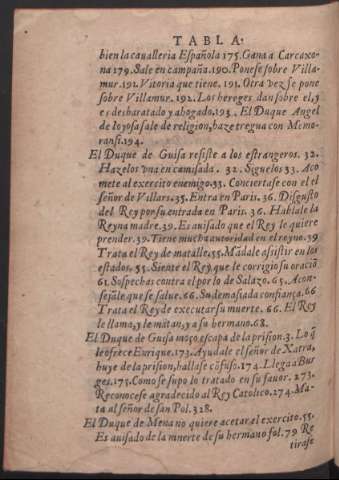 TABLA.
bien la cavalleria Española 175. Gana a Carcaxo-
na 179. Sale en campaña. 190. Ponese sobre Villa-
mur. 191. Vitoria que tiene. 191. Otra vez se pone
sobre Villamur. 192. Los hereges dan sobre el, y
es desbaratado y ahogado. 193. El Duque Angel
de Ioyosa sale de religion, haze tregua con Memo-
ransi. 194.
El Duque de Guisa resiste a los estrangeros. 32.
Hazelos vna en camisada. 32. Siguelos 33. Aco
mete al exercito enemigo. 33. Conciertase con el el
señor de Villars. 35. Entra en Paris. 36. Disgusto
del Rey por su entrada en Paris. 36. Hablale la
Reyna madre. 39. Es auisado que el Rey le quiere
prender. 39. Tiene mucha autoridad en el reyno. 39
Trata el Rey de matalle. 55. Mãdale assistir en los
estados. 55. Siente el Rey que le corrigio su oraciõ
61. Sospechas contra el por lo de Saluzo. 65. Acon-
sejãle que se salue. 66. Su demasiada confiança. 66
Trata el Rey de executar su muerte. 66. El Rey
le llama, y le matan, y a su hermano. 68.
El Duque de Guisa moço, escapa de la prision. 3. Lo q̃
le ofrece Enrique. 173. Ayudale el señor de Xatra,
huye de la prision, hallase cõfuso. 174. Llega a Bur
ges. 175. Como se supo lo tratado en su fauor. 273.
Reconocese agradecido al Rey Catolico. 274. Ma-
ta al señor de san Pol. 328.
El Duque de Mena no quiere acetar el exercito. 55.
Es auisado de la muerte de su hermano fol. 79 Re
tirase